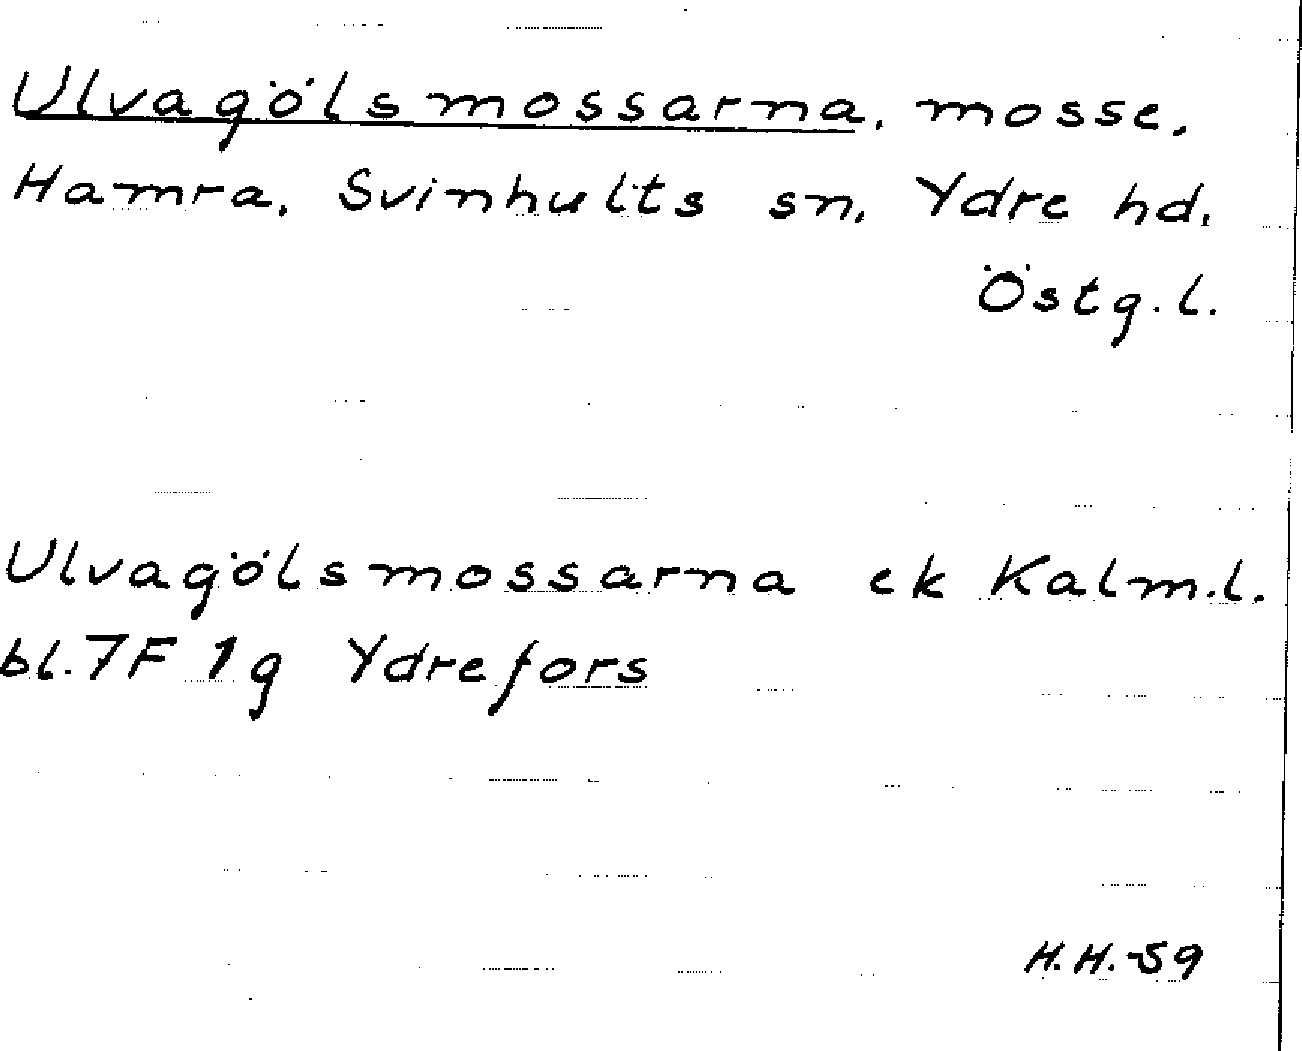 Ulvagölsmossarna, mosse,
Hamra, Svinhults sn, Ydre hd,
Östg.l.
Ulvagölsmossarna ek Kalm.l.
bl.7F 1g Ydrefors
H.H.-59